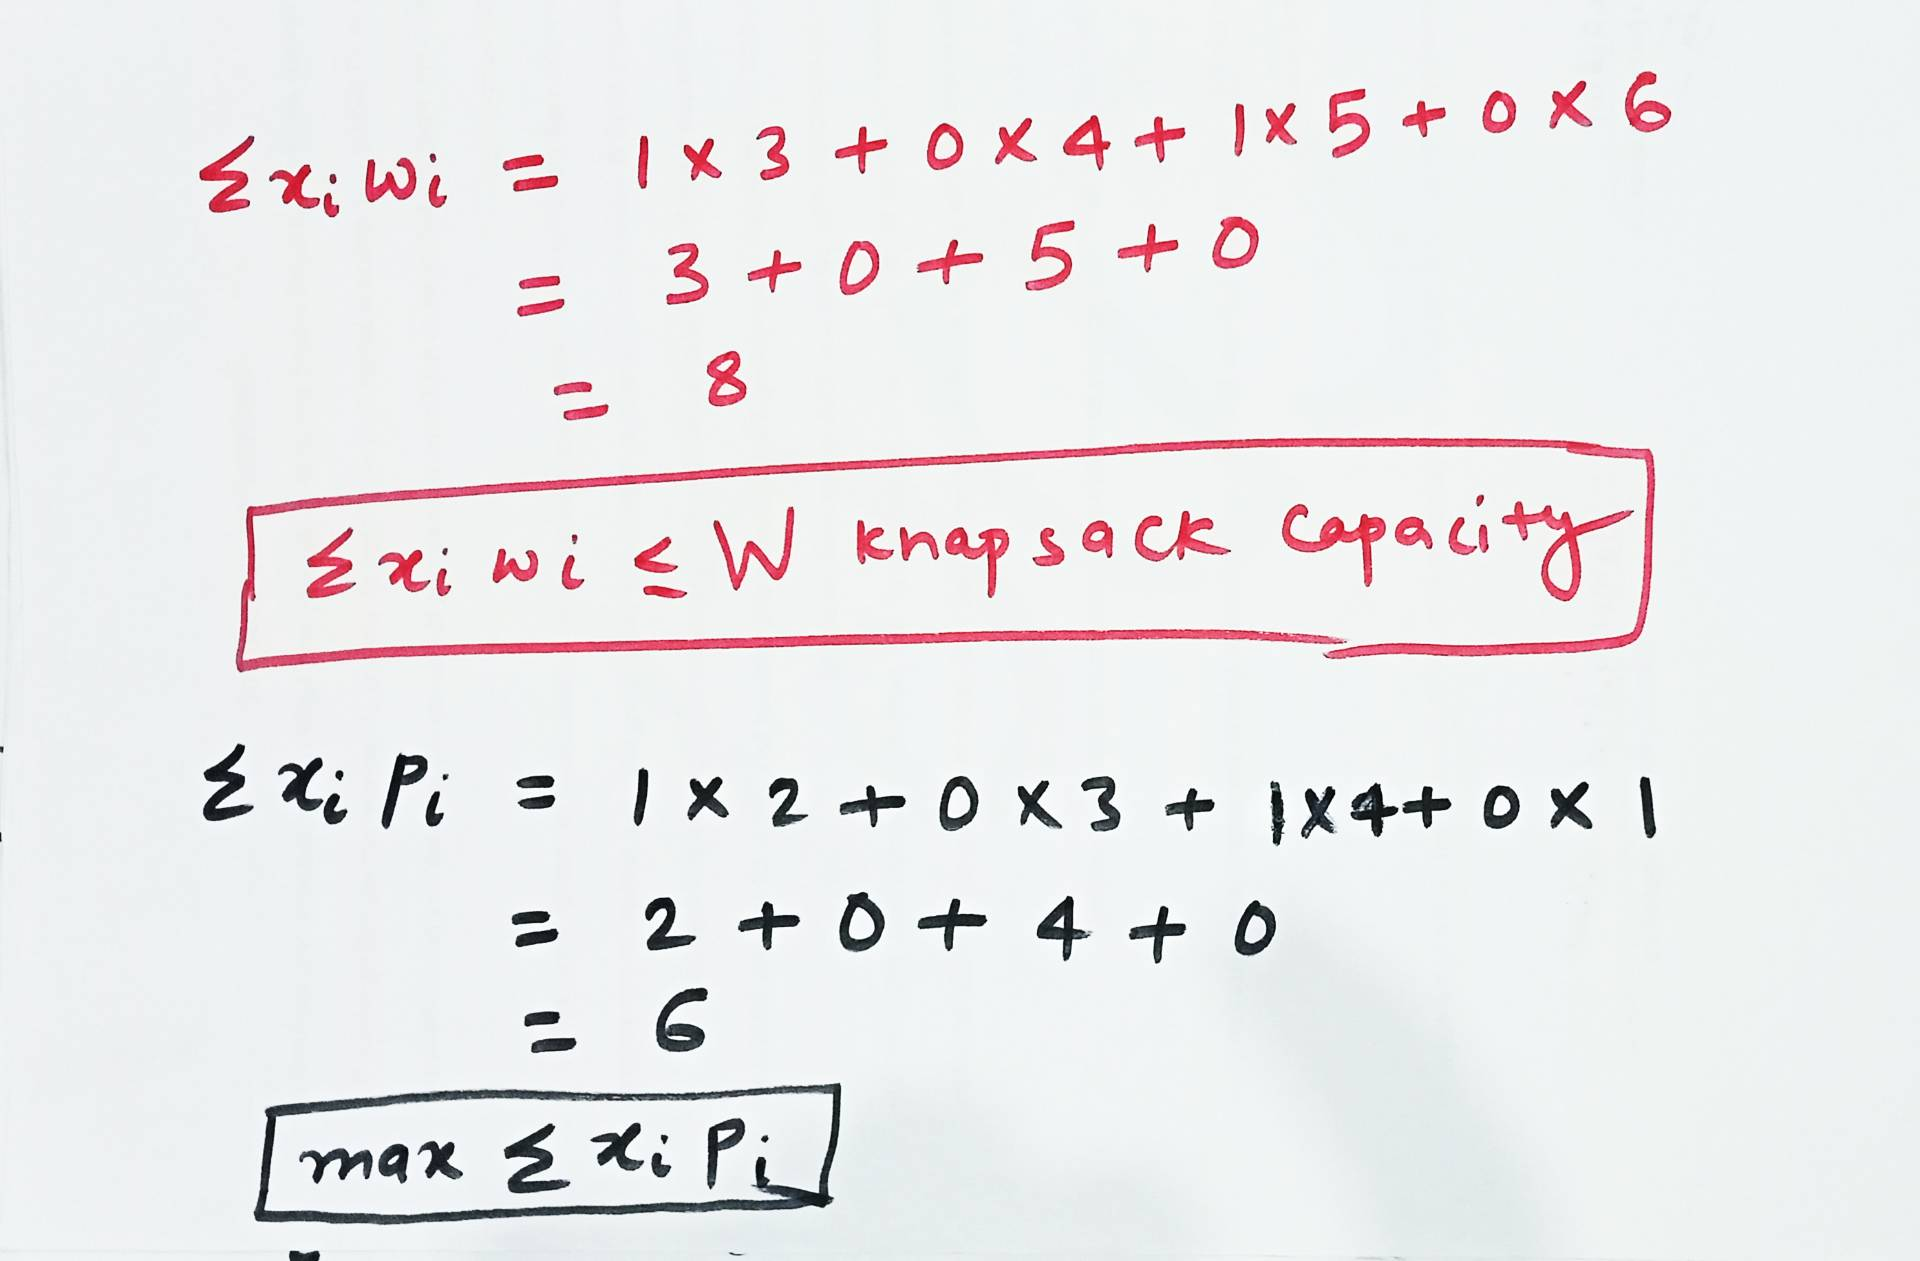 Σxᵢ wᵢ = 1 × 3 + 0 × 4 + 1 × 5 + 0 × 6
= 3 + 0 + 5 + 0
= 8
Σxᵢ wᵢ ≤ W knapsack capacity
Σxᵢ Pᵢ = 1 × 2 + 0 × 3 + 1 × 4 + 0 × 1
= 2 + 0 + 4 + 0
= 6
max Σ xᵢ Pᵢ